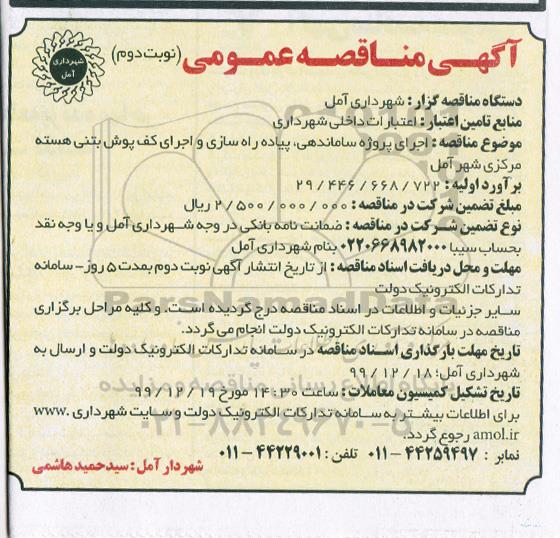 آگهی مناقصه عمومی (نوبت دوم)
شهرداری
آمل
دستگاه مناقصه گزار: شهرداری آمل
منابع تامین اعتبار: اعتبارات داخلی شهرداری
موضوع مناقصه: اجرای پروژه ساماندهی، پیاده راه سازی و اجرای کف پوش بتنی هسته
مرکزی شهر آمل
برآورد اولیه: ۲۹/۴۴۶/۶۶۸/۷۲۲
مبلغ تضمین شرکت در مناقصه: ۲/۵۰۰/۰۰۰/۰۰۰ ریال
نوع تضمین شرکت در مناقصه: ضمانت نامه بانکی در وجه شهرداری آمل و یا وجه نقد
بحساب سیبا ۰۲۲۰۶۶۸۹۸۲۰۰۰ بنام شهرداری آمل
مهلت و محل دریافت اسناد مناقصه: از تاریخ انتشار آگهی نوبت دوم بمدت ۵ روز- سامانه
تدارکات الکترونیک دولت
سایر جزئیات و اطلاعات در اسناد مناقصه درج گردیده است. و کلیه مراحل برگزاری
مناقصه در سامانه تدارکات الکترونیک دولت انجام می گردد.
تاریخ مهلت بارگذاری اسناد مناقصه در سامانه تدارکات الکترونیک دولت و ارسال به
شهرداری آمل: ۹۹/۱۲/۱۸
تاریخ تشکیل کمیسیون معاملات: ساعت ۱۴:۳۰ مورخ ۹۹/۱۲/۱۹
برای اطلاعات بیشتر به سامانه تدارکات الکترونیک دولت و سایت شهرداری www.
amol.ir رجوع گردد.
نمابر: ۴۴۲۵۹۴۹۷-۰۱۱ تلفن: ۴۴۲۲۹۰۰۱-۰۱۱
شهردار آمل: سیدحمید هاشمی
ParsNamadData
پایگاه اطلاع رسانی مناقصه و مزایده
۰۲۱-۸۸۳۴۹۶۷۰-۵